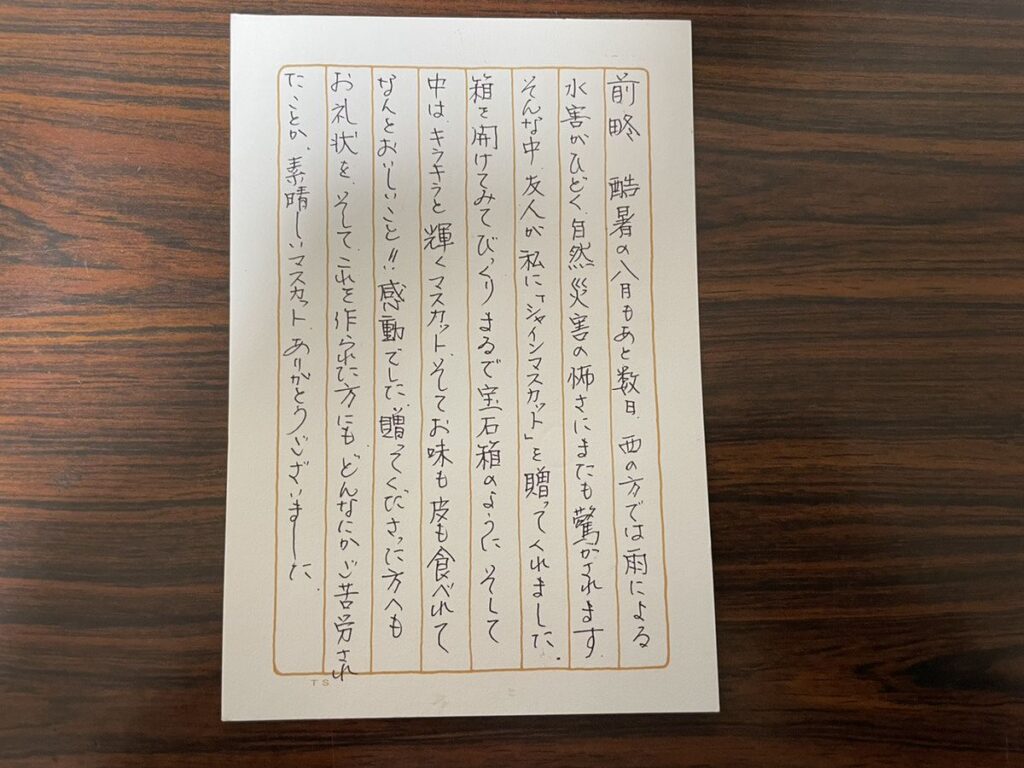 前略　酷暑の八月もあと数日、西の方では雨による
水害がひどく、自然災害の怖さにまたも驚かされます
そんな中、友人が私に「シャインマスカット」を贈ってくれました。
箱を開けてみてびっくり まるで宝石箱のように そして
中はキラキラと輝くマスカット、そしてお味も皮も食べれて
なんとおいしいこと!! 感動でした、贈ってくださった方へも
お礼状を、そして、これを作られた方にも どんなにかご苦労され
たことか、素晴しいマスカット、ありがとうございました、
TS